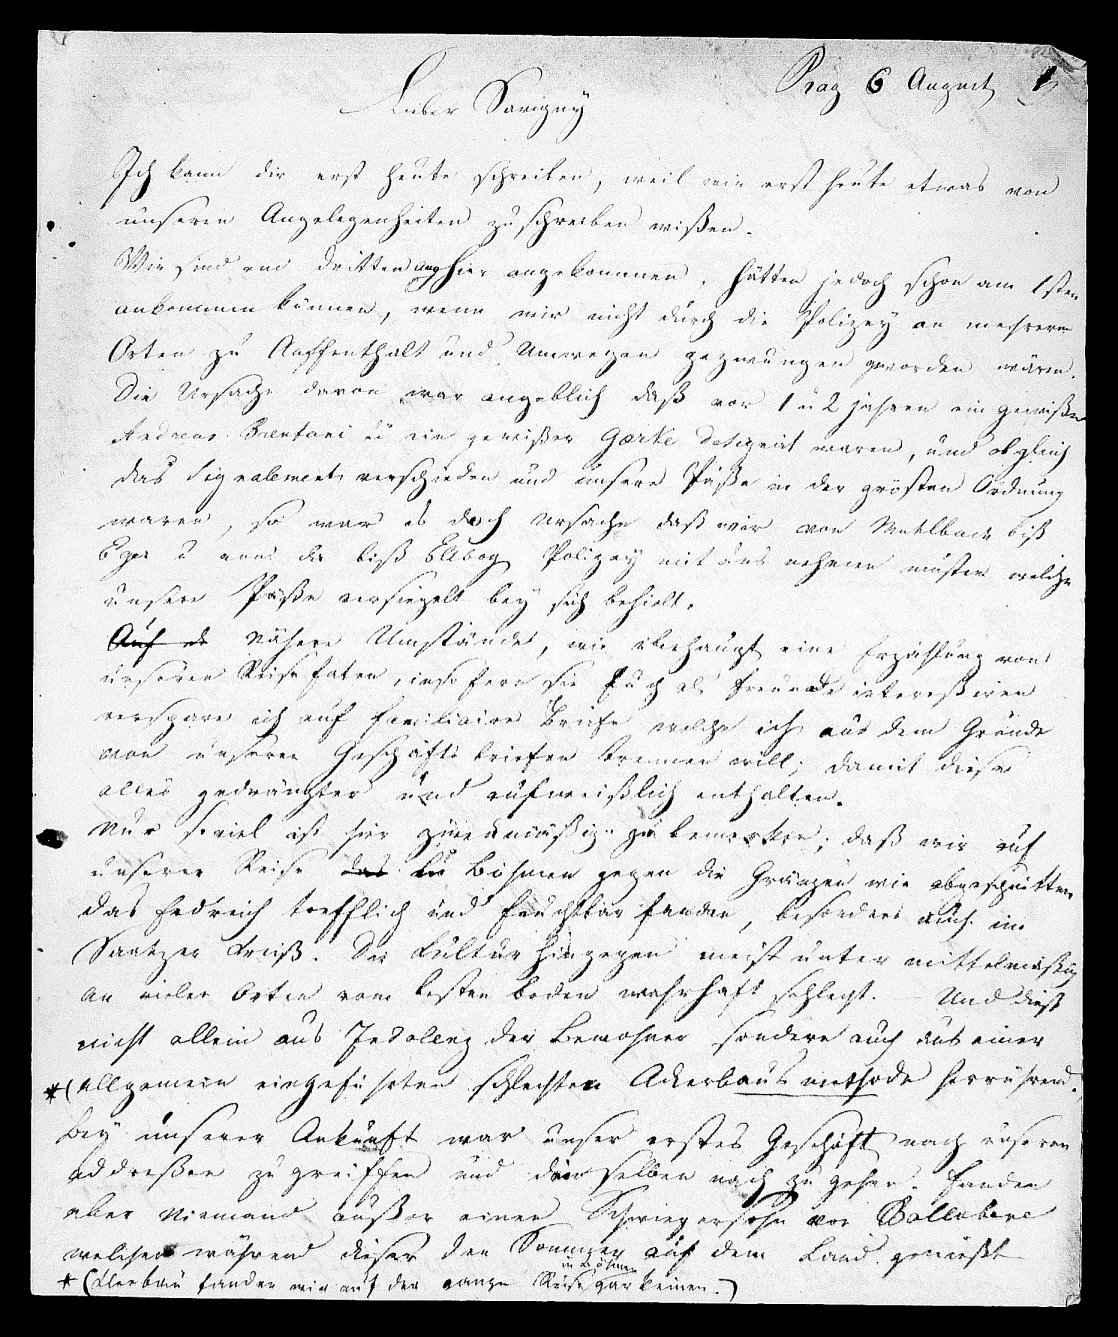 Prag 6 August
Lieber Savigny
Ich kann dir erst heute schreiben, weil wir erst heute etwas von
unseren Angelegenheiten zu schreiben wißen.
Wir sind am dritten Aug hier angekommen, hätten jedoch schon am 1sten
ankommen können, wenn wir nicht durch die Polizey an mehreren
Orten zu Auffenthalt und Umwegen gezwungen geworden wären.
Die Ursache davon war angeblich daß vor 1 u 2 jahren ein gewißer
Andreas Brentani u ein gewißer Gerke detignirt waren, und obgleich
das Signalement verschieden und unsere Päße in der grösten Ordnung
waren, so war es doch Ursache daß wir von Muhlbach biß
Eger u von da biß Ellbog Polizey mit uns nehmen musten welche
unsere Päße versiegelt bey sich behielt.
Auf de Nähere Umstände, wie überhaupt eine Erzählung von
unseren Reise faten, inso fern sie Euch als Freunde interessiren
verspare ich auf familiaire Briefe welche ich aus dem Grunde
von unseren Geschäfts briefen trennen will; damit diese
alles gedrängter und aufweißlich enthalten.
Nur soviel ist hier zweckmäßig zu bemerken; daß wir auf
unserer Reise das in Böhmen gegen die Gränzen wie
das Erdreich trefflich und fruchtbar fanden, besonders auch im
Saatzer Creiß. Die Cultur hingegen meist unter mittelmäßig
an vielen Orten vom besten boden wahrhaft schlegt. – Und dieß
nicht allein aus Indolenz der Bewohner sondern auch aus einer
*( allgemein eingeführten schlechten Ackerbaus methode herrührend.
Bey unserer Ankunft war unser erstes Geschäft nach unseren
addreßen zu greiffen und denselben nach zu gehen. fanden
aber Niemand außer einen Schwiegersohn von Ballabene
welcher während dieser den Sommer auf dem Land genießt
* (Kleebau fanden wir auf der ganzen Reise in Böhmen gar keinen.)